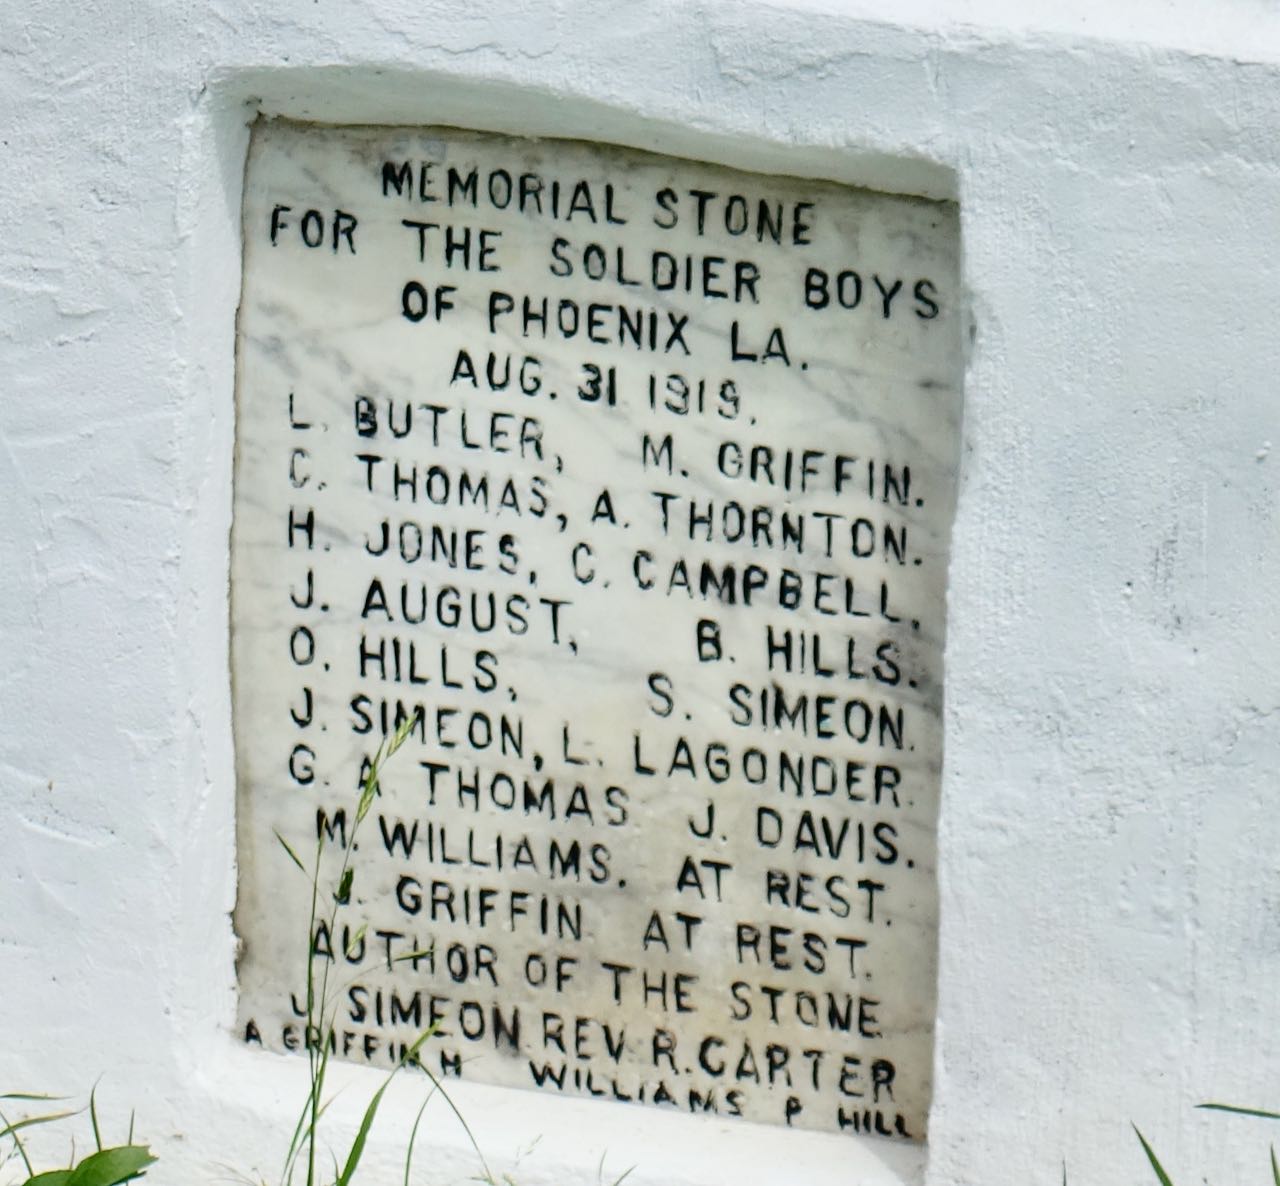 MEMORIAL STONE
FOR THE SOLDIER BOYS
OF PHOENIX LA.
AUG. 31 1919.
L. BUTLER, M. GRIFFIN.
C. THOMAS, A. THORNTON.
H. JONES, C. CAMPBELL.
J. AUGUST, B. HILLS.
O. HILLS, S. SIMEON.
J. SIMEON, L. LAGONDER.
G. A THOMAS J. DAVIS.
M. WILLIAMS. AT REST.
J. GRIFFIN AT REST.
AUTHOR OF THE STONE
J SIMEON REV R. CARTER
A GRIFFIN H WILLIAMS P HILL